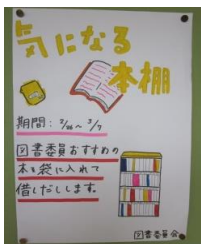 気になる
本棚
期間: 2/26～3/7
図書委員おすすめの
本を袋に入れて
借しだしします。
図書委員会